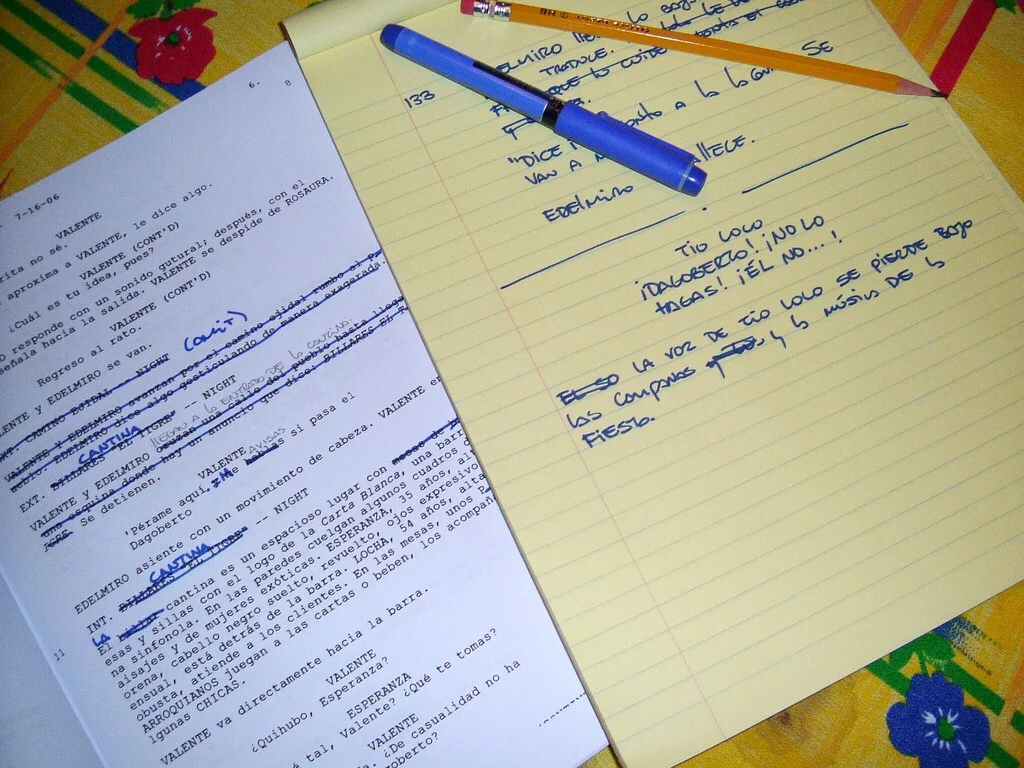 6.
8
7-16-06
VALENTE
rita no sé.
aproxima a VALENTE, le dice algo.
VALENTE (CONT'D)
¿Cuál es tu idea, pues?
responde con un sonido gutural; después, con el
señala hacia la salida. VALENTE se despide de ROSAURA.
VALENTE (CONT'D)
Regreso al rato.
ENTE y EDELMIRO se van.
CAMINO EJIDAL -- NIGHT (OMIT)
VALENTE y EDELMIRO avanzan por el camino ejidal rumbo al
EDELMIRO dice algo gesticulando de manera exagerada.
EXT. BILLARES EL TIGRE -- NIGHT
CANTINA
LLEGAN A LA ENTRADA DE LA CANTINA.
VALENTE Y EDELMIRO cruzan una calle del pueblo hasta llega
una esquina donde hay un anuncio que dice: BILLARES EL
IGRE. Se detienen.
VALENTE
'Pérame aquí, me hablas si pasa el
AVISAS
Dagoberto
EDELMIRO asiente con un movimiento de cabeza. VALENTE
INT. BILLARES EL TIGRE -- NIGHT
CANTINA
11
LA
El billar cantina es un espacioso lugar con mesas de
esas y sillas con el logo de la Carta Blanca, una barr
na sinfonola. En las paredes cuelgan algunos cuadros d
aisajes y de mujeres exóticas. ESPERANZA, 35 años,
orena, cabello negro suelto, revuelto, ojos expresivo
ensual, está detrás de la barra. LOCHA, 54 años, alta
obusta, atiende a los clientes. En las mesas, unos
ARROQUIANOS juegan a las cartas o beben, los acompañ
lgunas CHICAS.
VALENTE va directamente hacia la barra.
VALENTE
¿Quihubo, Esperanza?
ESPERANZA
é tal, Valente? ¿Qué te tomas?
VALENTE
. ¿De casualidad no ha
goberto?
133
TRADUCE.
"DICE
A LO LOGU SE
VAN A
EDELMIRO
TÍO LOCO
¡DAGOBERTO! ¡NO LO
HAGAS! ¡ÉL NO...!
LA VOZ DE TÍO LOCO SE PIERDE BAJO
LAS CAMPANAS Y LA MÚSICA DE LA
FIESTA.